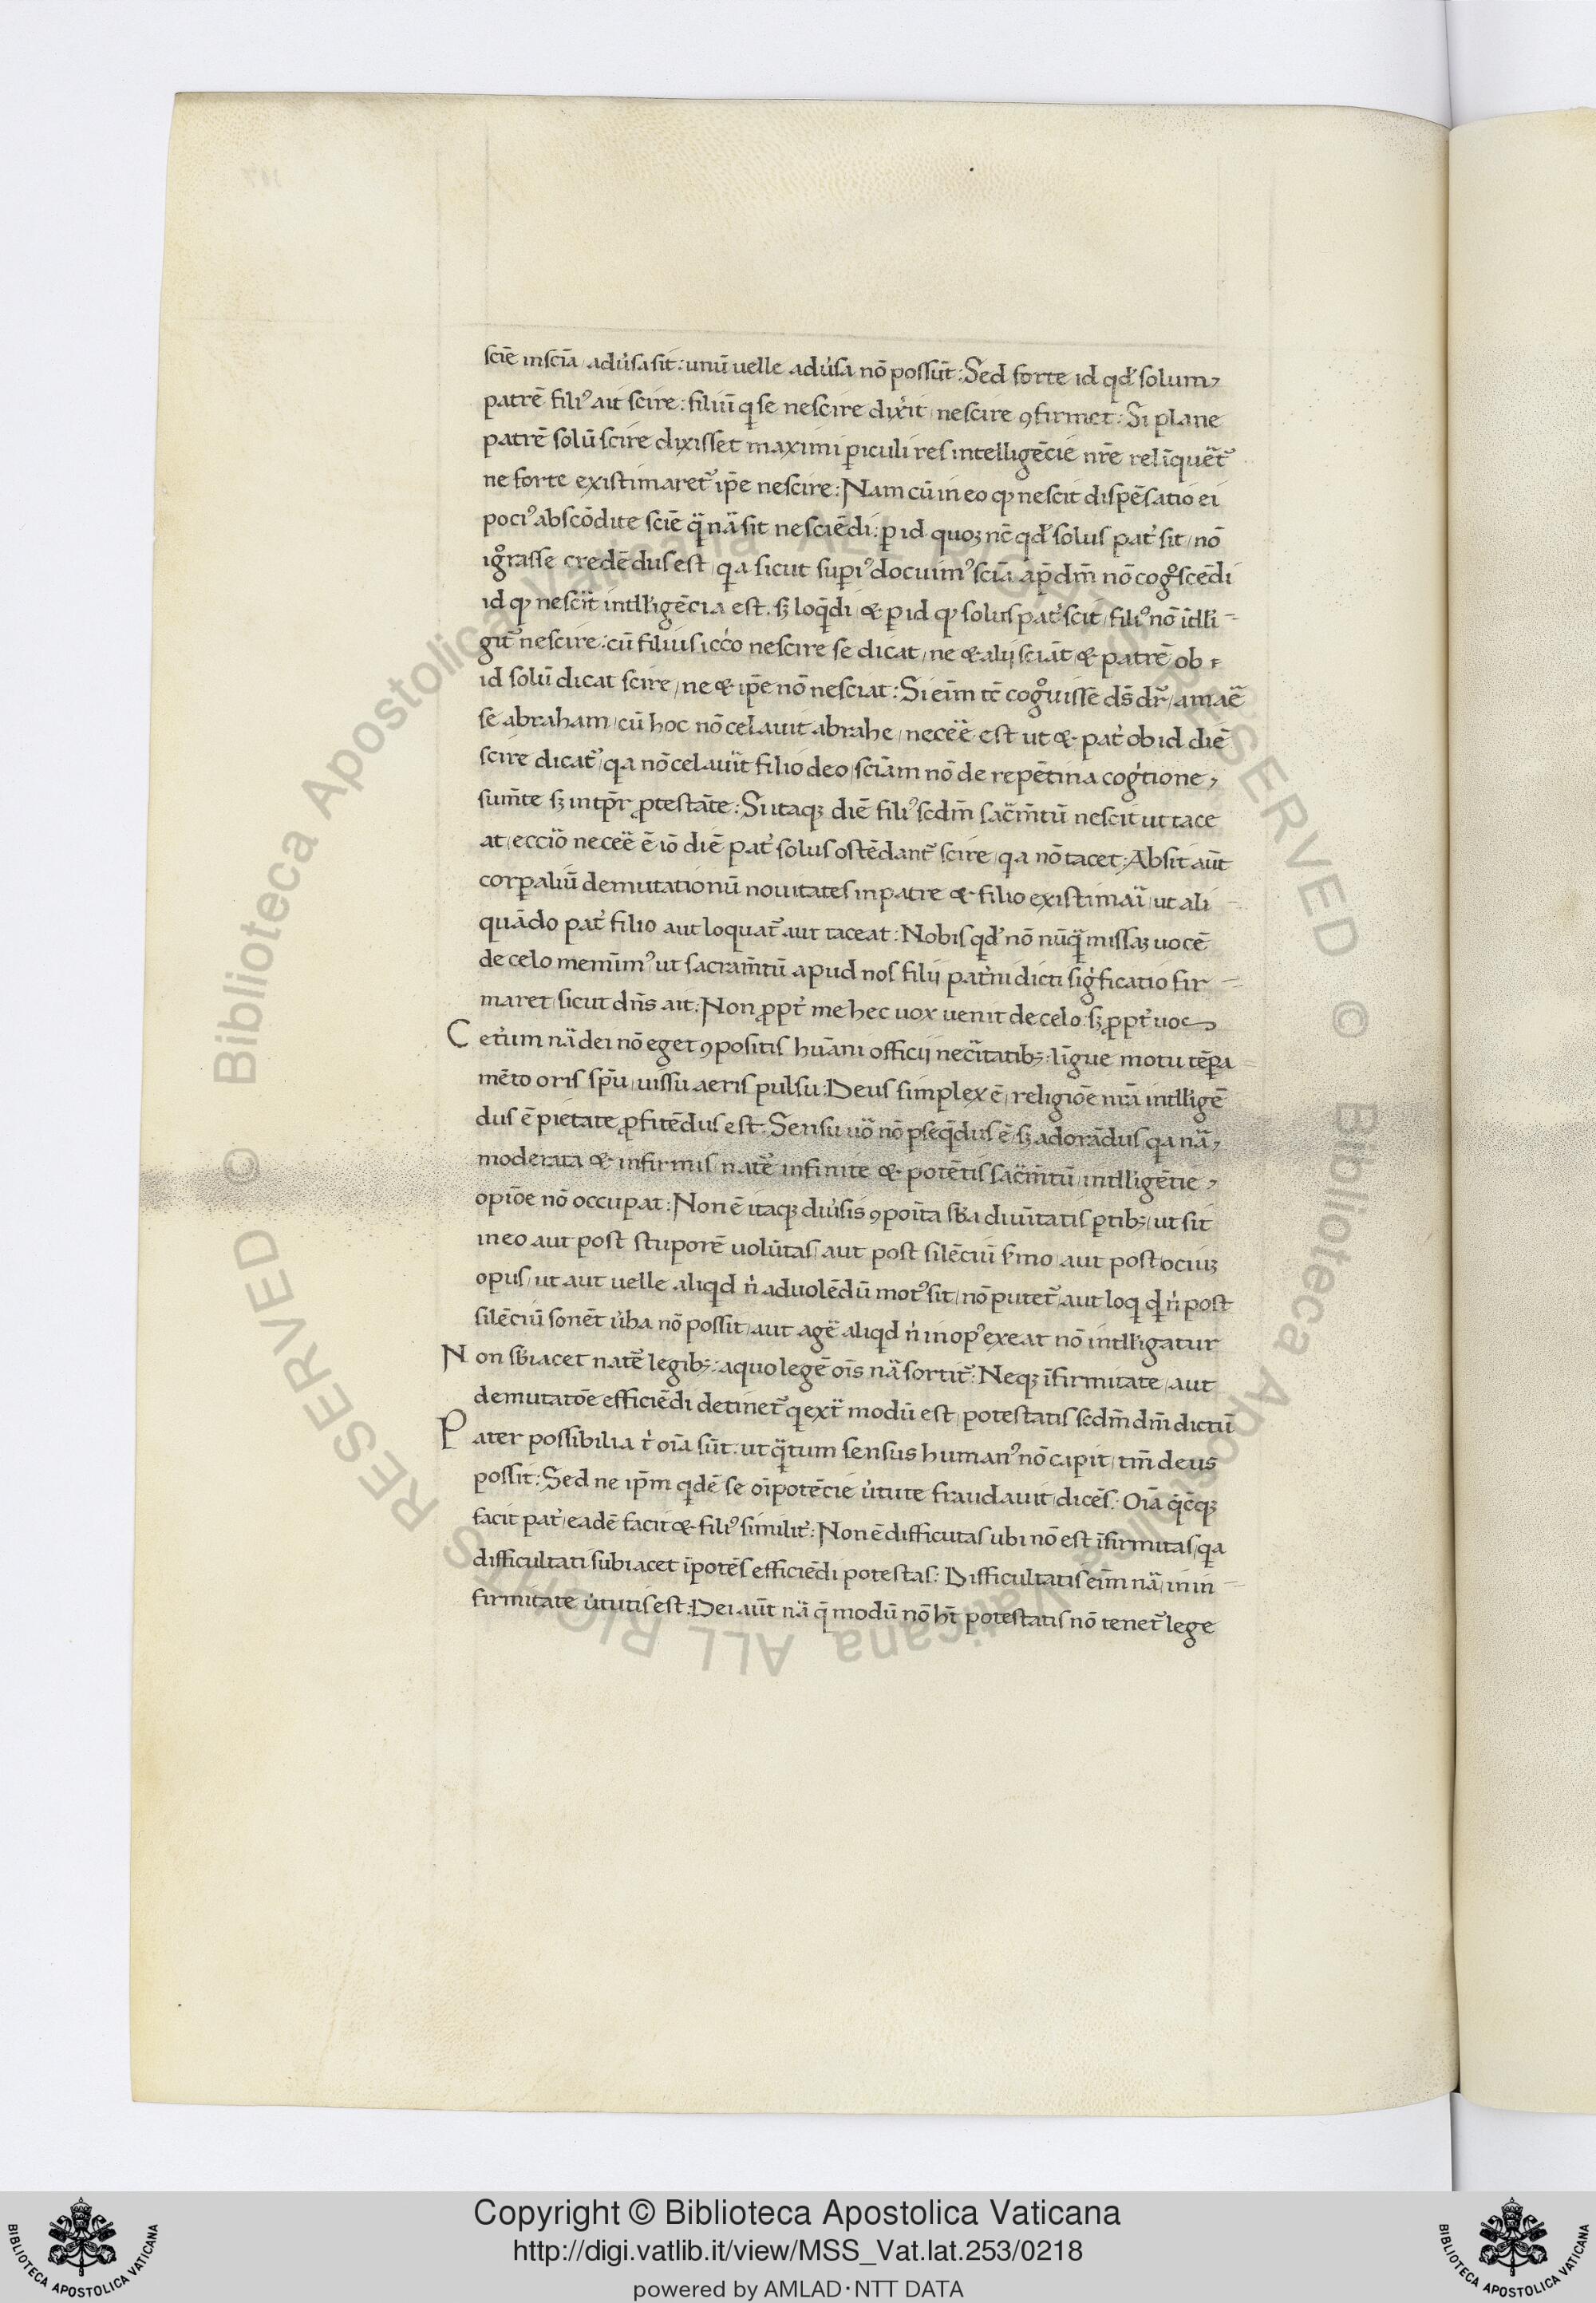 sciē insciā adu̓sa sit: unū uelle adu̓sa nō possūt: Sed forte id qđ solum,
patrē filiꝰ ait scire: filiū q̨ se nescire dix̓it nescire ꝯfirmet: Si plane
patrē solū scire dixisset maximi ꝑiculi res intelligēcie nr̄e relīquēt᷑
ne forte existimaret᷑ ip̄e nescire: Nam cū in eo ꝙ nescit dispēsatio ei
pociꝰ abscōdite sciē q̈ nä sit nesciēdi: ꝑ id quoꝫ nē qđ solus pat̓ sit nō
ig̊rasse credēdus est qa sicut supiꝰ docuimꝰ sciā ap̄ dm̄ nō cog̊scēdi
id ꝙ nescit̄ intll̓igēcia est. sꝫ loq̄di & ꝑ id ꝙ solus pat̓ scit filiꝰ nō ītll̓i
git᷑ nescire: cū filius icc̓o nescire se dicat ne & alij sciāt & patrē ob
id solū dicat scire ne & ip̄e nō nesciat: Si eīm tē cog̊uissē ds̄ dr̄ amaē
se abraham cū hoc nō celauit abrahe neceē est ut & pat̓ ob id diē
scire dicat᷑ qa nō celauit filio deo sciām nō de repētina cog̓tione,
sum̄te sꝫ intp̄r ꝓtestāte: Si itaqꝫ diē filiꝰ scdm̄ sac̄m̄tū nescit ut tace
at eccio neceē ē iō diē pat̓ solus ostēdant᷑ scire qa nō tacet: Absit aūt
corꝑaliū demutationū nouitates in patre & filio existimai ut ali
quādo pat̓ filio aut loquat᷑ aut taceat: Nobis qđ nō nūq̄ missaꝫ uocē
de celo memīmꝰ ut sacram̄tū apud nos filii pat̓ni dicti sig̓ficatio fir
maret sicut dn̄s ait: Non ꝓpt̓ me hec uox uenit de celo: sꝫ ꝓpt̓ uos
Cet̓um nä dei nō eget ꝯpositis hūani officij nec̄itatibꝫ: līgue motu tēꝑa
mēto oris sp̄u uissu aeris pulsu: Deus simplex ē religiōe nr̄a intll̓igē
dus ē pietate ꝓfitēdus est: Sensu uō nō ꝑseq̄dus ē sꝫ adorādus qa nä,
moderata & infirmis nat̄e infinite & potētis sac̄m̄tū intll̓igētie,
opiōe nō occupat: Non ē itaqꝫ diu̓sis ꝯpoīta sb̓a diuītatis ꝑtibꝫ ut sit
in eo aut post stuporē uolūtas aut post silēciū s̓mo aut post ociuꝫ
opus ut aut uelle aliqd n̓ aduolēdū motꝰ sit nō putet᷑ aut loq qd n̓ post
silēciū sonēt u̓ba nō possit aut agē aliqd n̓ in opꝰ exeat nō intll̓igatur
Non sb̓iacet nat̄e legibꝫ: a quo legē oīs nä sortit᷑: Neqꝫ īfirmitate aut
demutatōe efficiēdi detinet᷑ q̨ ext̄ modū est potestatis scdm̄ dm̄ dictū
Pater possibilia t̓ oīa sūt: ut q̄tum sensus humanꝰ nō capit tm̄ deus
possit: Sed ne ip̄m qdē se oīpotēcie u̓tute fraudauit dicēs: Oīa q̄cēqꝫ
facit pat̓ eadē facit & filiꝰ similit̓: Non ē difficutas ubi nō est īfirmitas qa
difficultati subiacet īpotēs efficiēdi potestas: Difficultatis eīm nä in in
firmitate u̓tutis est: Dei aūt nä q̄ modū nō hт̄ potestatis nō tenet᷑ lege
Copyright © Biblioteca Apostolica Vaticana
http://digi.vatlib.it/view/MSS_Vat.lat.253/0218
powered by AMLAD·NTT DATA